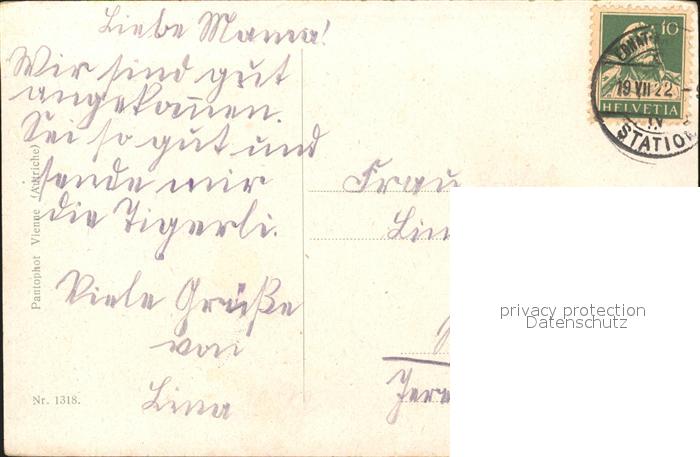 Liebe Mama!
Wir sind gut
angekommen.
Sei so gut und
sende mir
die Tigerli.
Viele Grüße
von
Lina
Frau
Pantophot Vienne (Autriche)
Nr. 1318.
10
HELVETIA
19 VII 22
IV
STATION
privacy protection
Datenschutz